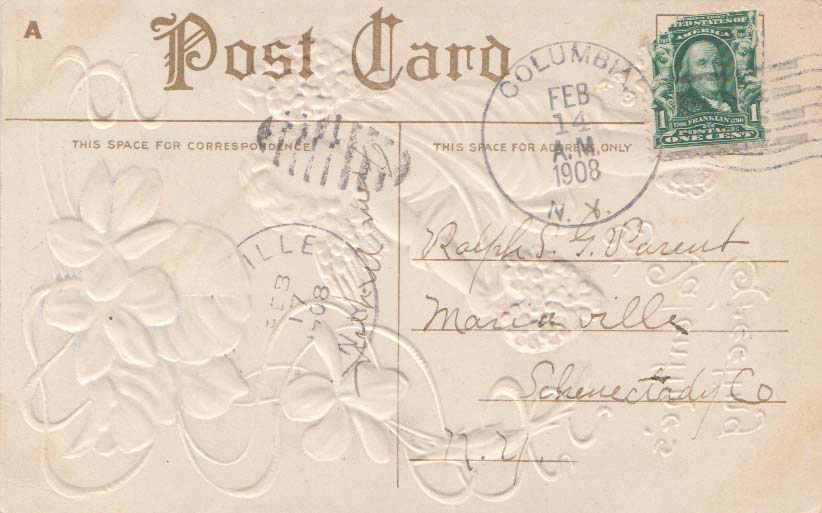 A
Post Card
THIS SPACE FOR CORRESPONDENCE
THIS SPACE FOR ADDRESS ONLY
COLUMBIA
FEB
14
A.M.
1908
N.Y.
UNITED STATES OF
AMERICA
1 FRANKLIN 1790 1
POSTAGE
ONE CENT
VILLE
FEB
17
1908
Ralph S. G. Parent
Mariaville
Schenectady Co
N. Y.